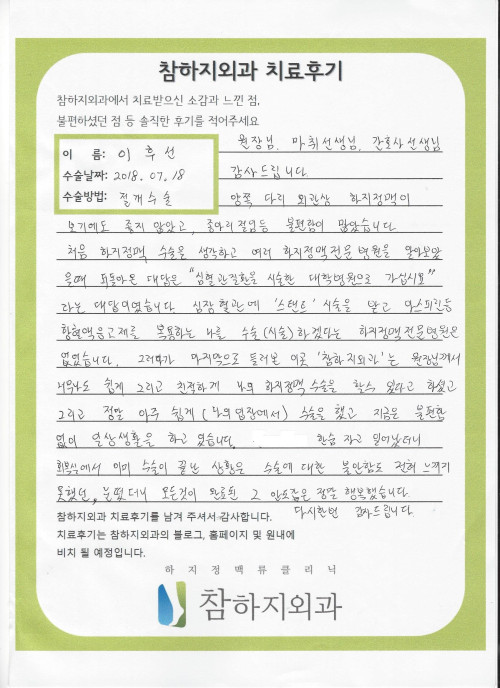 참하지외과 치료후기
참하지외과에서 치료받으신 소감과 느낀 점,
불편하셨던 점 등 솔직한 후기를 적어주세요
원장님, 마취선생님, 간호사선생님
이 름: 이후선
감사드립니다.
수술날짜: 2018. 07. 18
수술방법: 절개수술
양쪽 다리 외관상 하지정맥이
보기에도 좋지 않았고, 종아리 절임등 불편함이 많았습니다.
처음 하지정맥 수술을 생각하고 여러 하지정맥전문병원을 알아보았
을때 되돌아온 대답은 "심혈관질환을 시술한 대학병원으로 가십시요"
라는 대답이였습니다. 심장혈관에 '스탠트' 시술을 받고 아스피린등
항혈액응고제를 복용하는 나를 수술(시술)하겠다는 하지정맥전문병원은
없었습니다. 그러다가 마지막으로 들러본 이곳 '참하지외과'는 원장님께서
너무나도 쉽게 그리고 친절하게 나의 하지정맥수술을 할수 있다고 하셨고
그리고 정말 아주 쉽게 (나의입장에서) 수술을 했고 지금은 불편함
없이 일상생활을 하고 있습니다. 한숨 자고 일어났더니
회복실에서 이미 수술이 끝난 상황은 수술에 대한 불안함도 전혀 느끼지
못했던, 눈떴더니 모든것이 완료된 그 안도감은 정말 행복했습니다.
다시한번 감사드립니다.
참하지외과 치료후기를 남겨 주셔서 감사합니다.
치료후기는 참하지외과의 블로그, 홈페이지 및 원내에
비치 될 예정입니다.
하지정맥류클리닉
참하지외과